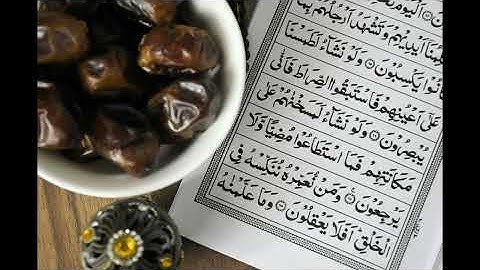 اَلْيَوْمَ
اَيْدِيْهِمْ وَتَشْهَدُ اَرْجُلُهُمْ بِمَا
كَانُوْا يَكْسِبُوْنَ ۝ وَلَوْ نَشَآءُ لَطَمَسْنَا
عَلٰٓى اَعْيُنِهِمْ فَاسْتَبَقُوا الصِّرَاطَ فَاَنّٰى
يُبْصِرُوْنَ ۝ وَلَوْ نَشَآءُ لَمَسَخْنٰهُمْ عَلٰى
مَكَانَتِهِمْ فَمَا اسْتَطَاعُوْا مُضِيًّا وَّلَا
يَرْجِعُوْنَ ۝ وَمَنْ نُّعَمِّرْهُ نُنَكِّسْهُ فِى
الْخَلْقِ ؕ اَفَلَا يَعْقِلُوْنَ ۝ وَمَا عَلَّمْنٰهُ